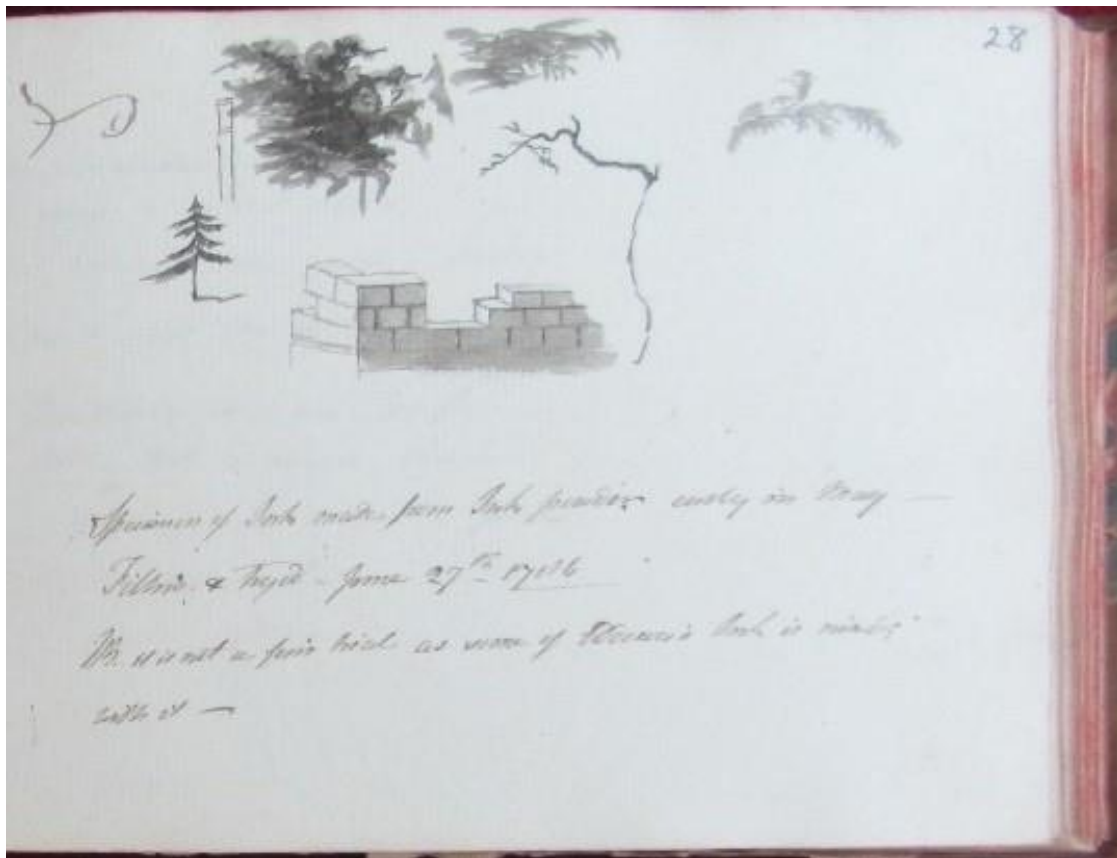 28
Specimen of Ink made from Ink powder early in May —
Filter'd & Try'd - June 27th
NB. it is not a fair trial as some of Ink is mixed
with it —